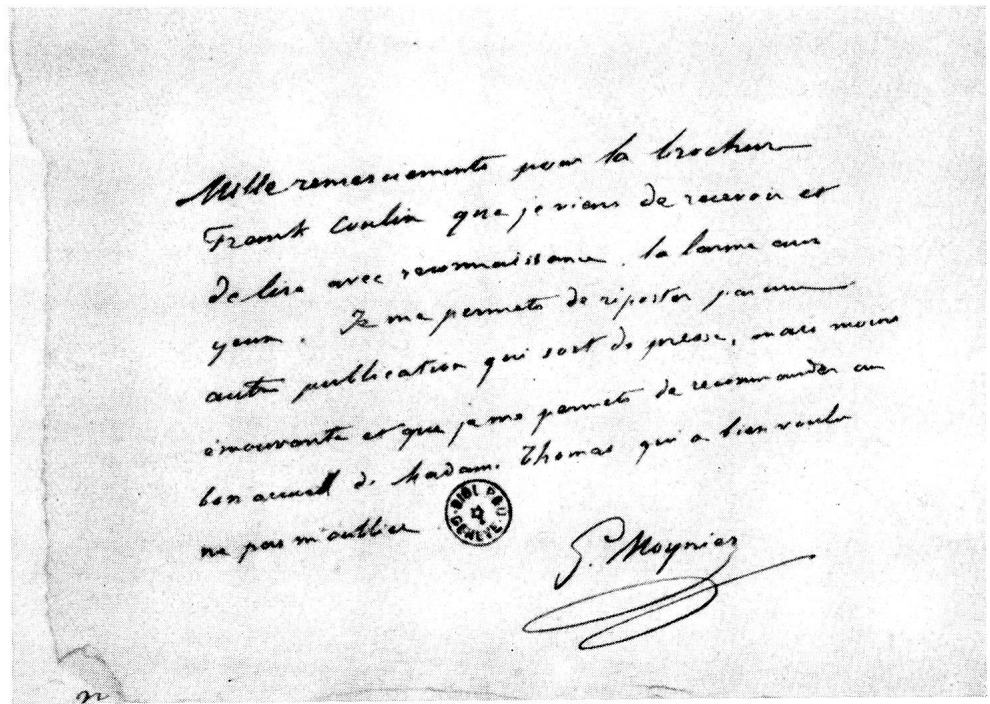 Mille remerciements pour la brochure
Frank Coulin que je viens de recevoir et
de lire avec reconnaissance, la larme aux
yeux. Je me permets de riposter par une
autre publication qui sort de presse, mais moins
émouvante et que je me permets de recommander au
bon accueil de Madame Thomas qui a bien voulu
ne pas m'oublier
BIBL PBU
GENÈVE
G. Moynier